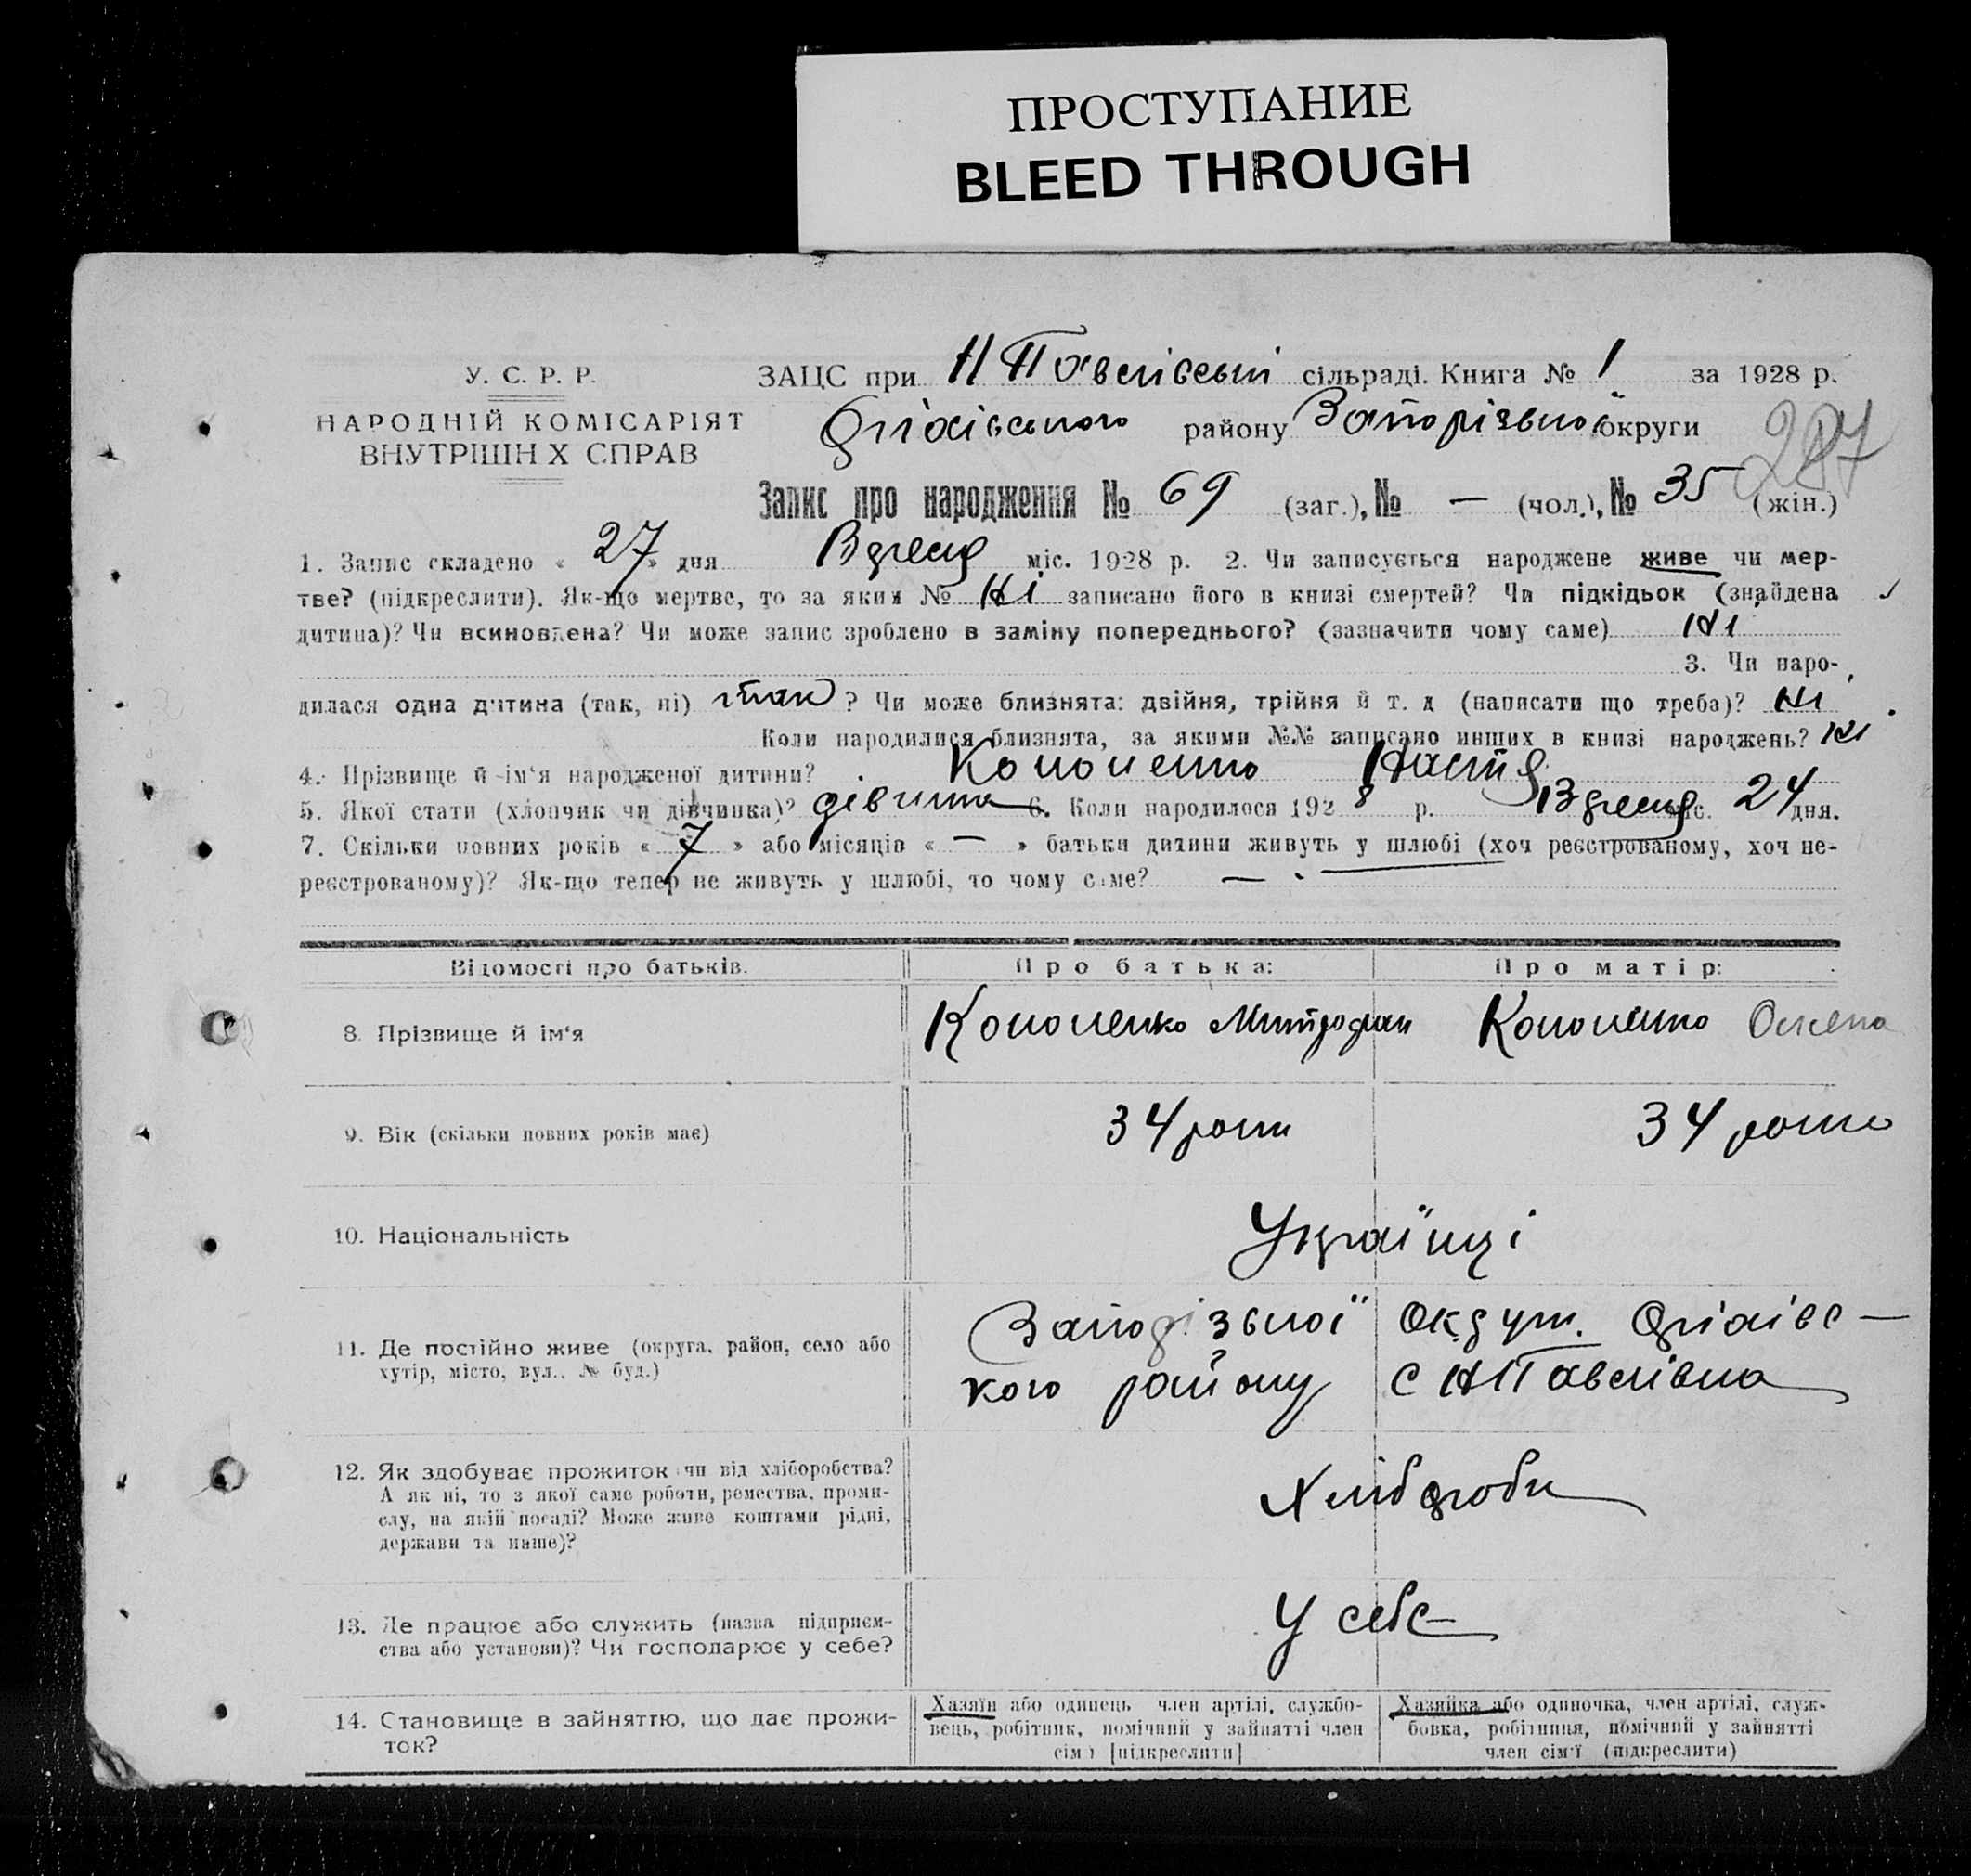 ПРОСТУПАНИЕ
BLEED THROUGH
У. С. Р. Р.
НАРОДНІЙ КОМІСАРІЯТ
ВНУТРІШН Х СПРАВ
ЗАЦС при Н Павлівські сільраді. Книга № 1 за 1928 р.
району Запорізької округи
287
Запис про народження № 69 (заг.), № — (чол.), № 35 (жін.)
1. Запис складено « 27 » дня Вресня міс. 1928 р. 2. Чи записується народжене живе чи мер-
тве? (підкреслити). Як-що мертве, то за яким № Ні записано його в книзі смертей? Чи підкідьок (знайдена
дитина)? Чи всиновлена? Чи може запис зроблено в заміну попереднього? (зазначити чому саме) Ні
3. Чи наро-
дилася одна дитина (так, ні) так ? Чи може близнята: двійня, трійня й т. д (написати що треба)? Ні
Коли народилися близнята, за якими №№ записано инших в книзі народжень? Ні
4. Прізвище й ім‘я народженої дитини? Кононенко Настя
5. Якої стати (хлопчик чи дівчинка)? дівчинка 6. Коли народилося 1928 р. Вресня міс. 24 дня.
7. Скільки повних років « 7 » або місяців « — » батьки дитини живуть у шлюбі (хоч реєстрованому, хоч не-
реєстрованому)? Як-що тепер не живуть у шлюбі, то чому саме? —
Відомості про батьків.
Про батька:
Про матір:
8. Прізвище й ім‘я
Кононенко Митрофан
Кононенко Оксена
9. Вік (скільки повних років має)
34 роки
34 роки
10. Національність
Українці
11. Де постійно живе (округа, район, село або
хутір, місто, вул., № буд.)
Запорізької Округ. Оріхівс—
кого району с Н Павлівка
12. Як здобуває прожиток чи від хліборобства?
А як ні, то з якої саме роботи, ремества, проми-
слу, на якій посаді? Може живе коштами рідні,
держави та инше)?
Хлібороби
13. Де працює або служить (назва підприєм-
ства або установи)? Чи господарює у себе?
У себе
14. Становище в зайняттю, що дає прожи-
ток?
Хазяїн або одинець член артілі, службо-
вець, робітник, помічний у зайнятті член
сім ї [підкреслити]
Хазяйка або одиночка, член артілі, служ-
бовка, робітниця, помічний у зайнятті
член сім'ї (підкреслити)